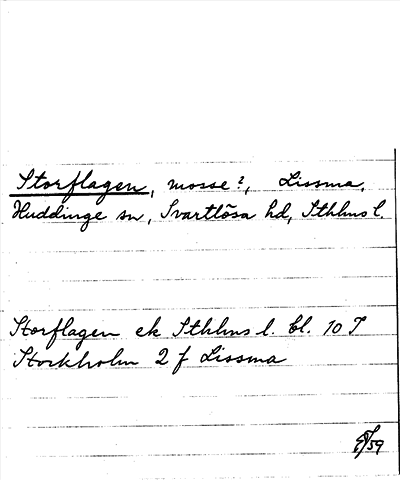 Storflagen, mosse?, Lissma,
Huddinge sn, Svartlösa hd, Sthlms l.
Storflagen ek Sthlms l. bl. 10 I
Stockholm 2 f Lissma
/59